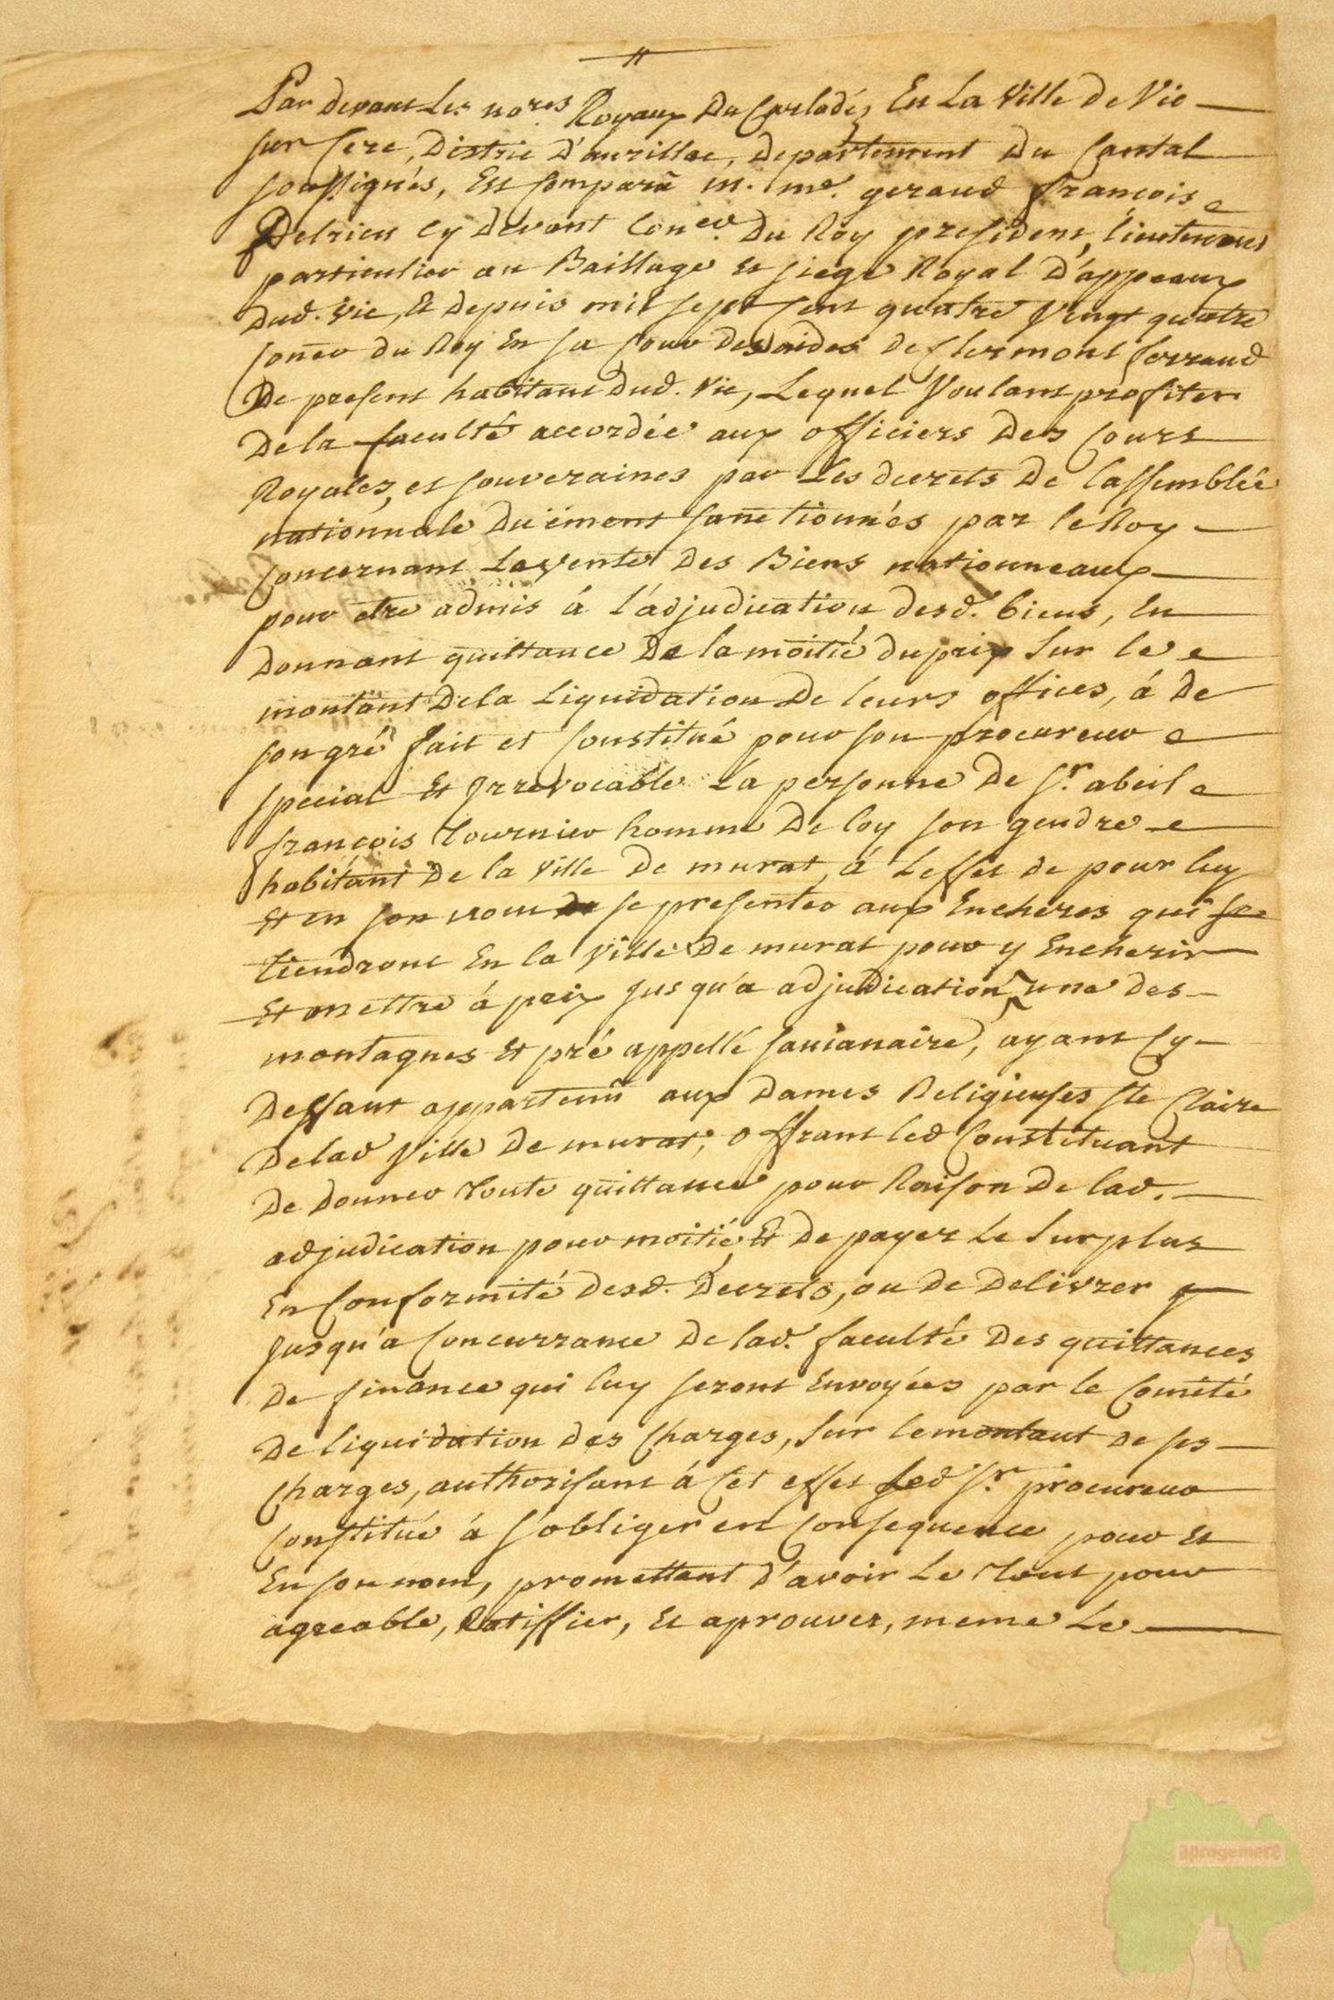 Par devant les no.res Royaux Du Carladés, En La Ville de Vic
sur Cere, District D'aurillac, departement Du Cantal
soussignés, Est Comparu m. me. geraud francois
Delrieu cy devant Con.er Du Roy president, lieutenant
particulier au Baillage Et siege Royal D'appeaux
Dud. Vic, Et depuis mil sept cent quatre Vingt quatre
Coner du Roy En sa Cour des aides de Clermont ferrand
De present habitant dud. Vic, Lequel Voulant profiter
De la faculté accordée aux officiers Des Cours
Royales, et souveraines par Les decrets De L'assemblée
nationnale Duëment sanctionnés par le Roy
Concernant La vente Des Biens nationneaux
pour etre admis á l'adjudication desd. biens, En
Donnant quittance De la moitié du prix sur le
montant De la Liquidation De leurs offices, á De
son gré fait et Constitué pour son procureur
special Et Irrevocable La personne De Sr. abeil
françois Tournier homme De loy son gendre
habitant De la Ville De murat, á L'effet de pour luy
Et en son nom se presenter aux Encheres qui se
tiendront En la Ville De murat pour y Encherir
Et mettre á prix jusqu'a adjudication, une des
montagnes Et pré appellé , ayant Cy
Dessant appartenu aux Dames Religieuses Ste Claire
De lad Ville De murat; offrant led Constituant
De donner Toute quittance pour Raison De lad.
adjudication pour moitié, Et De payer Le surplus
En Conformité Desd. Decrets, ou de Delivrer
jusqu'a Concurrance De lad. faculté Des quittances
De finance qui luy seront Envoyées par le Comité
De liquidation des Charges, sur le montant De ses
Charges, authorisant á Cet effet led Sr. procureur
Constitué á s'obliger en Consequence pour Et
En son nom, promettant D'avoir Le Tout pour
agreable, Ratiffier, Et aprouver, meme Le
aprogemere